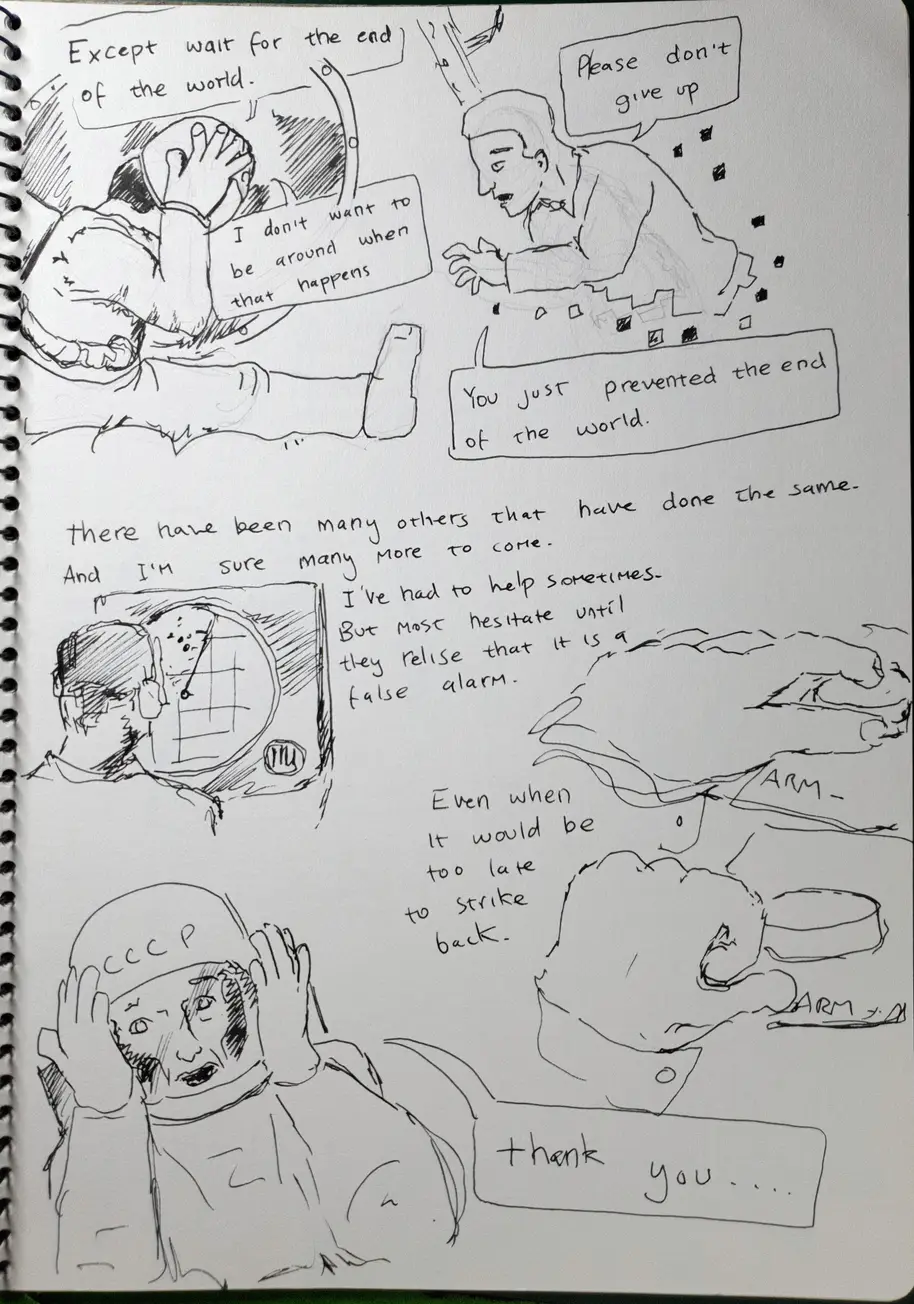 Except wait for the end
of the world.
I don't want to
be around when
that happens
Please don't
give up
You just prevented the end
of the world.
there have been many others that have done the same.
And I'm sure many more to come.
I've had to help sometimes.
But most hesitate until
they relise that it is a
false alarm.
ARM
Even when
it would be
too late
to strike
back.
ARM
CCCP
thank
you.....